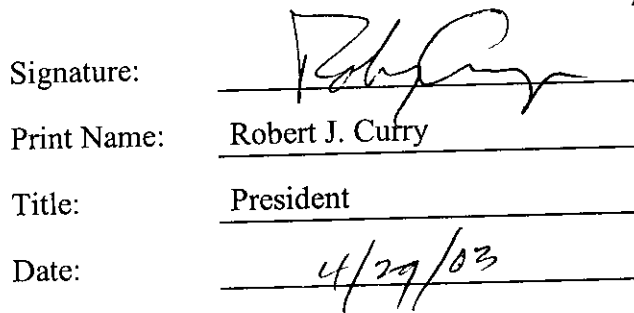 Signature:
Print Name: Robert J. Curry
Title: President
Date: 4/29/03